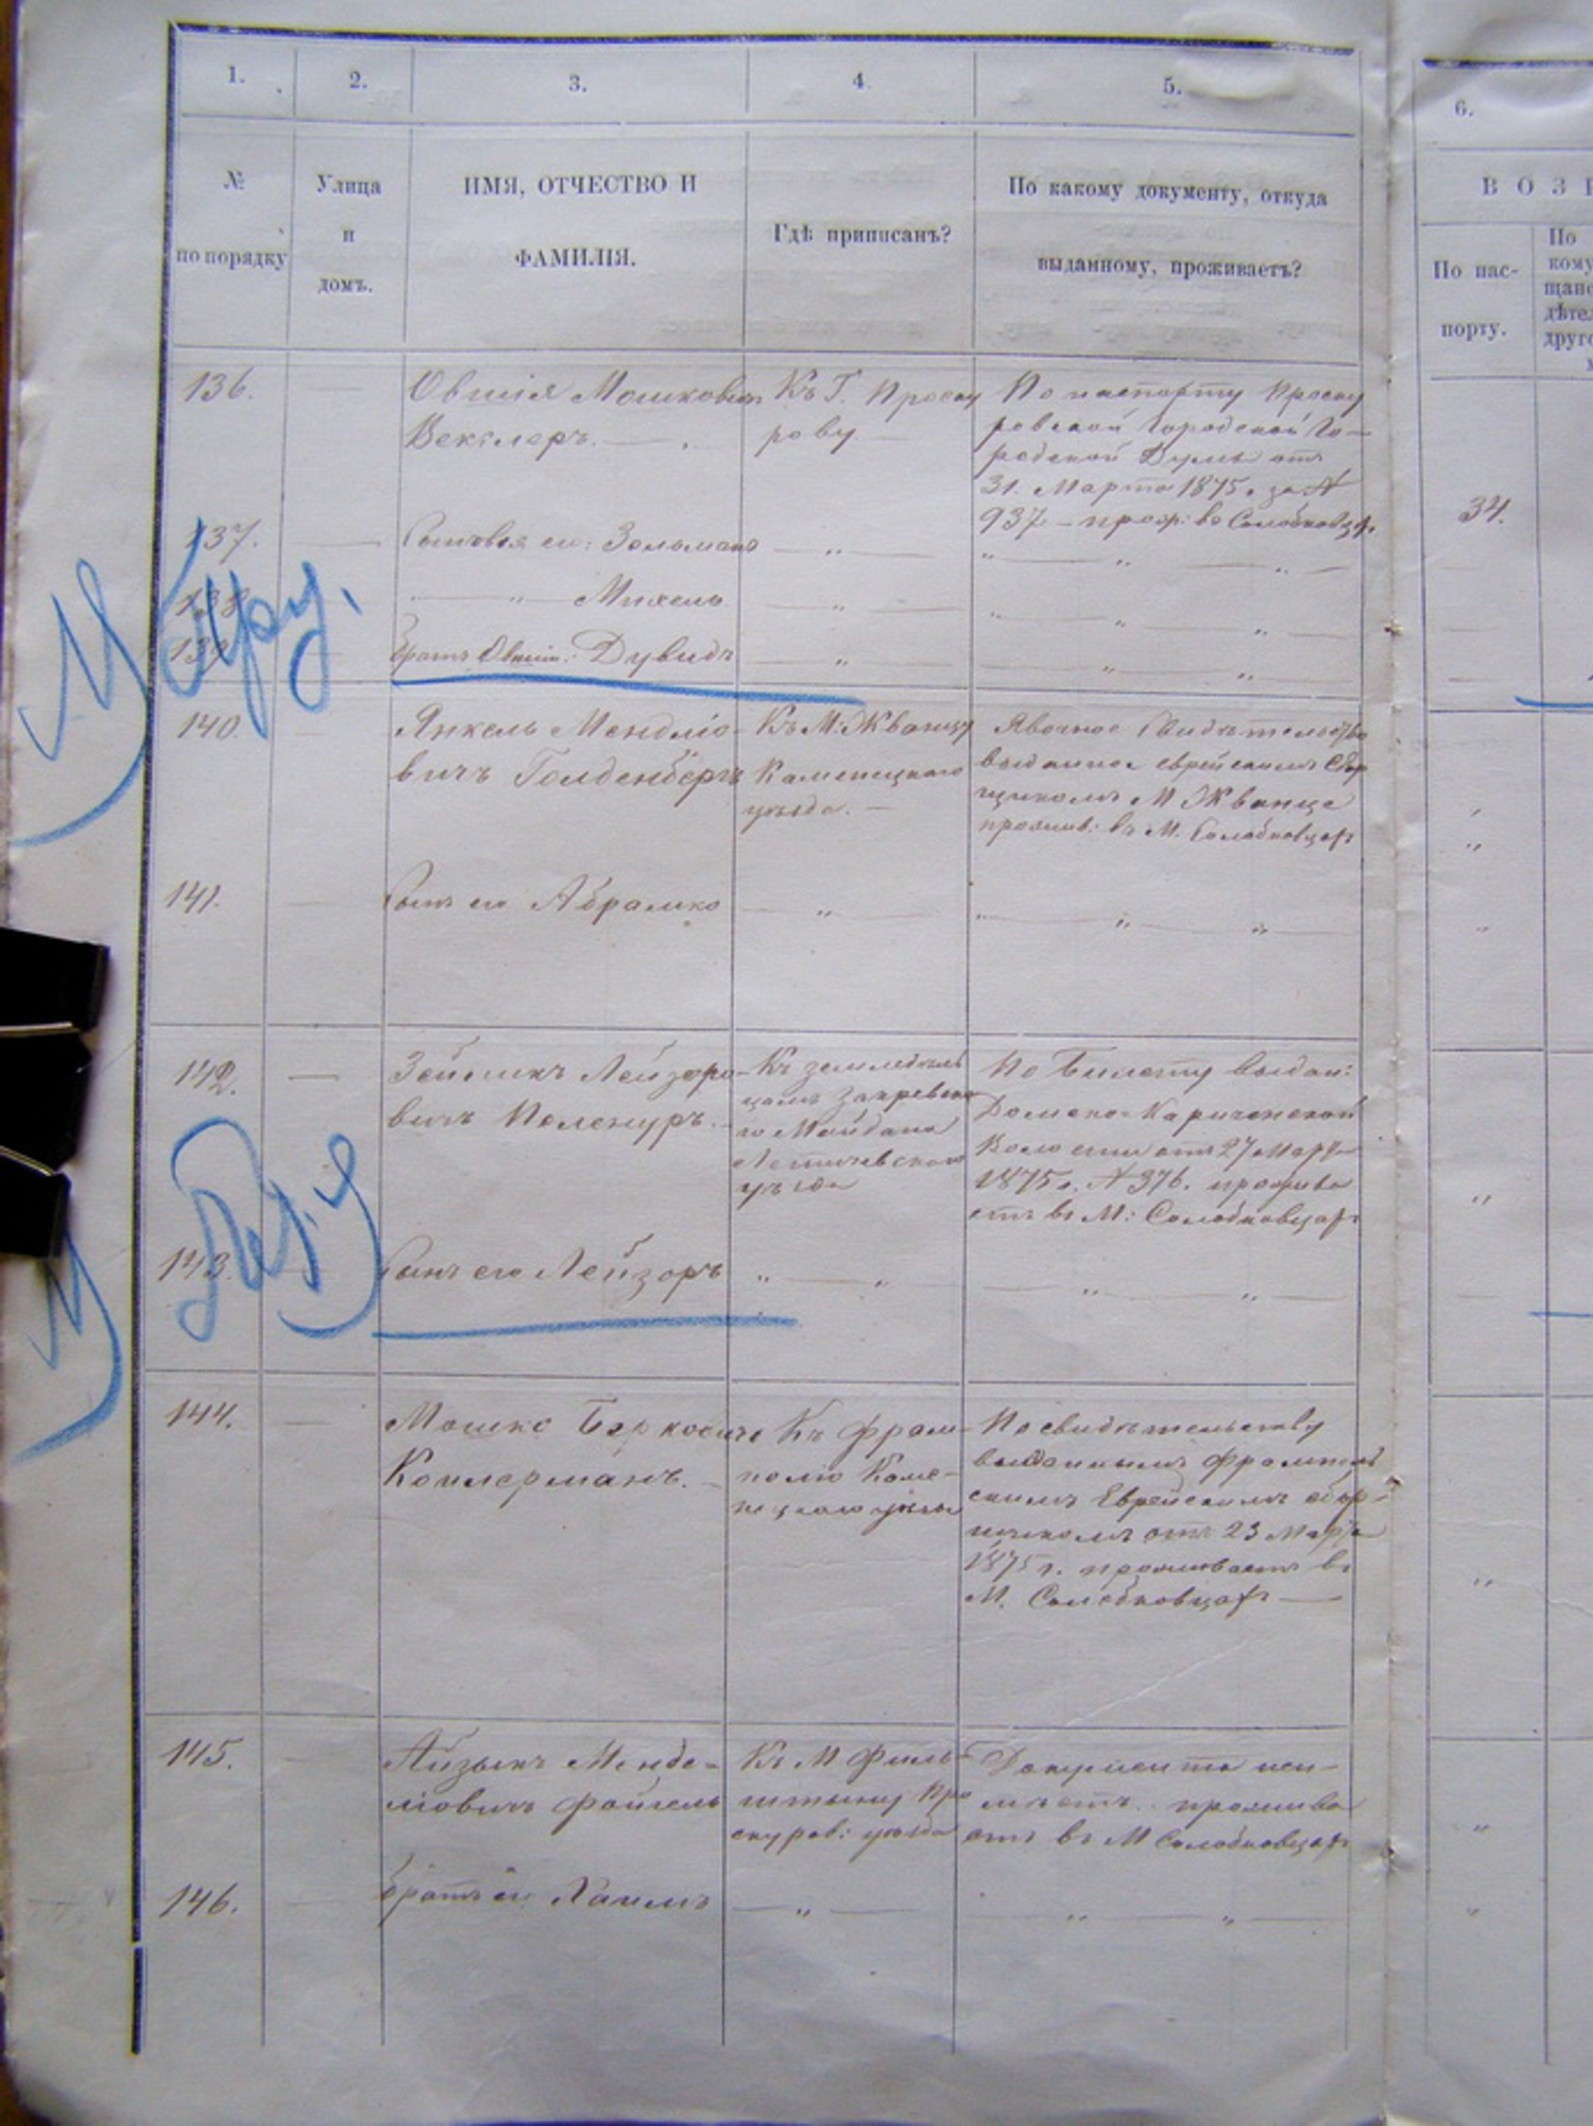 1. 2. 3. 4. 5. 6.
№ по порядку
Улица и домъ.
ИМЯ, ОТЧЕСТВО И ФАМИЛІЯ.
Гдѣ приписанъ?
По какому документу, откуда
выданному, проживаетъ?
По пас-
порту.
136. Овшія Мошковичъ
Векслеръ.
Къ Г. Проску
рову
По паспорту Проску
ровской Городской Го-
родской Думы отъ
31. Марта 1875 г. за №
937 - прож: въ Солобковцах.
34.
137. Сыновья его: Зельманъ
138. " Михель
139. Братъ Овшіи: Дувидъ
140. Янкель Мендліо-
вичъ Голденбергъ
Къ М: Жванцу
Каменецкаго
уѣзда.
Явочное Свидѣтельство
выданное еврейскимъ Сбор
щикомъ М Жванца
прожив: въ М. Солобковцахъ
141. Сынъ его Абрамко
142. Зейликъ Лейзоро-
вичъ
Къ земледѣль
цамъ
го Майдана
Летичевского
уѣзда
По Билету выдан:
Волости отъ 27 Марта
1875 г. № 376. прожива
етъ въ М: Солобковцахъ
143. Сынъ его Лейзоръ
144. Мошко Берковичъ
Къ Фрам-
полю Каме-
нецкого уѣзда
По свидѣтельству
выданнымъ Фрампол
скимъ Еврейскимъ сбор-
щикомъ отъ 23 Марта
1875 г. проживаетъ въ
М. Солобковцахъ
145. Айзыкъ Менде-
ліовичъ Фойгель
Къ М Фель-
штыну Про
скуров: уѣзда
Документа неи-
мѣетъ. прожива
етъ въ М Солобковцахъ
146. Братъ его Хаимъ